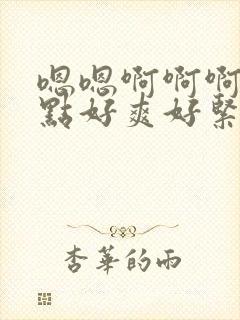 嗯嗯啊啊啊
點好爽好緊
杏華的雨